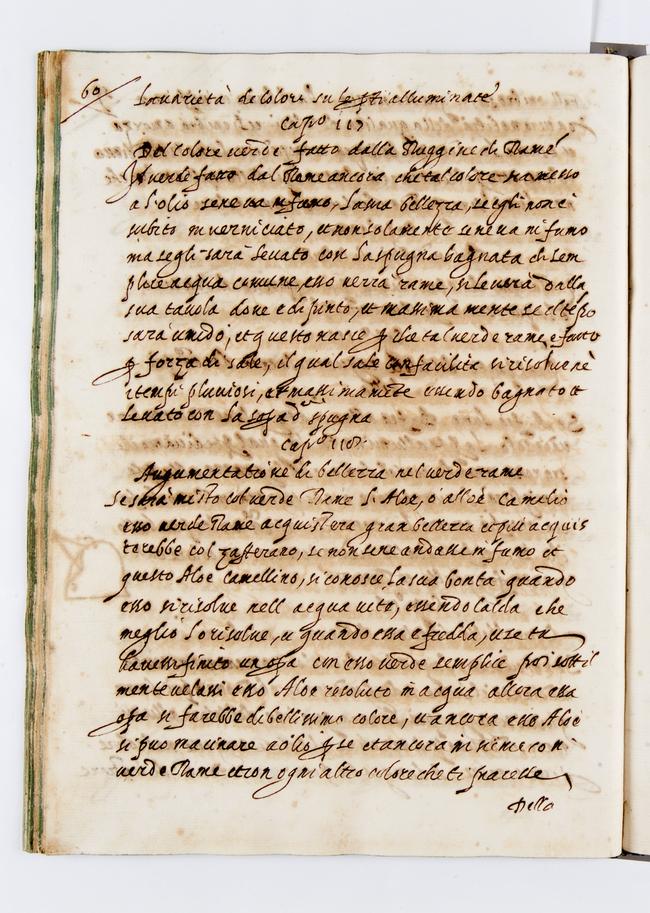 60
La varietà de colori su le pti alluminate
capº 117
Del colore verde fatto dalla Ruggine di Rame
Il verde fatto dal Rame ancora che tal colore sia messo
a l'olio sene va in fumo, la sua bellezza, se egli non è
subito inverniciato, et non solamente sene va in fumo
ma se gli sarà levato con la spugna bagnata di sem
plice acqua comune, esso verza rame, si leverà dalla
sua tavola dove e dipinto, et massima mente se il tēpo
sarà umido, et questo nasce p che tal verde rame e fatto
p forza di sale, il qual sale con facilità si risolve nè
i tempi pluviosi, et massimamēte essendo bagnato et
levato con la sopa dª spugna
capº 118
Augumentatione di bellezza nel verde rame
Se sarà misto col verde Rame l'Aloe, o alloè camelio
esso verde Rame acquistera gran bellezza et più acquis
terebbe col zafferano, se non sene andasse in fumo et
questo Aloe Camellino, si conosce la sua bontà quando
esso si risolve nell acqua vite, essendo calda che
meglio lo risolve, ch quando essa e fredda, et se tu
havessi finito un opa con esso verde semplice poi sottil
mente velassi esso Aloe resoluto in acqua allora essa
opa si farebbe di bellissimo colore, et ancora esso Aloè
si può macinare a olio p se et ancora insieme con
verde Rame et con ogni altro colore che ti piacesse
Della